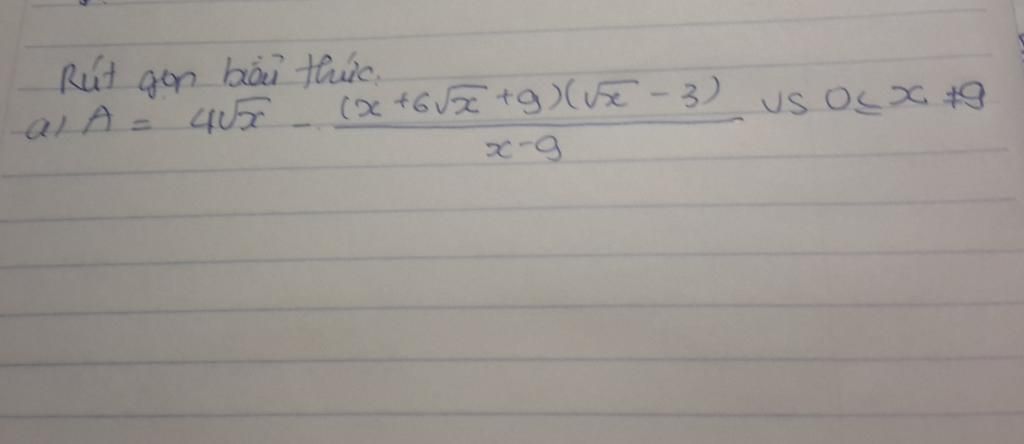 Rút gọn biểu thức.
a) A = 4√x - (x + 6√x + 9)(√x - 3) / x - 9 vs 0 ≤ x ≠ 9